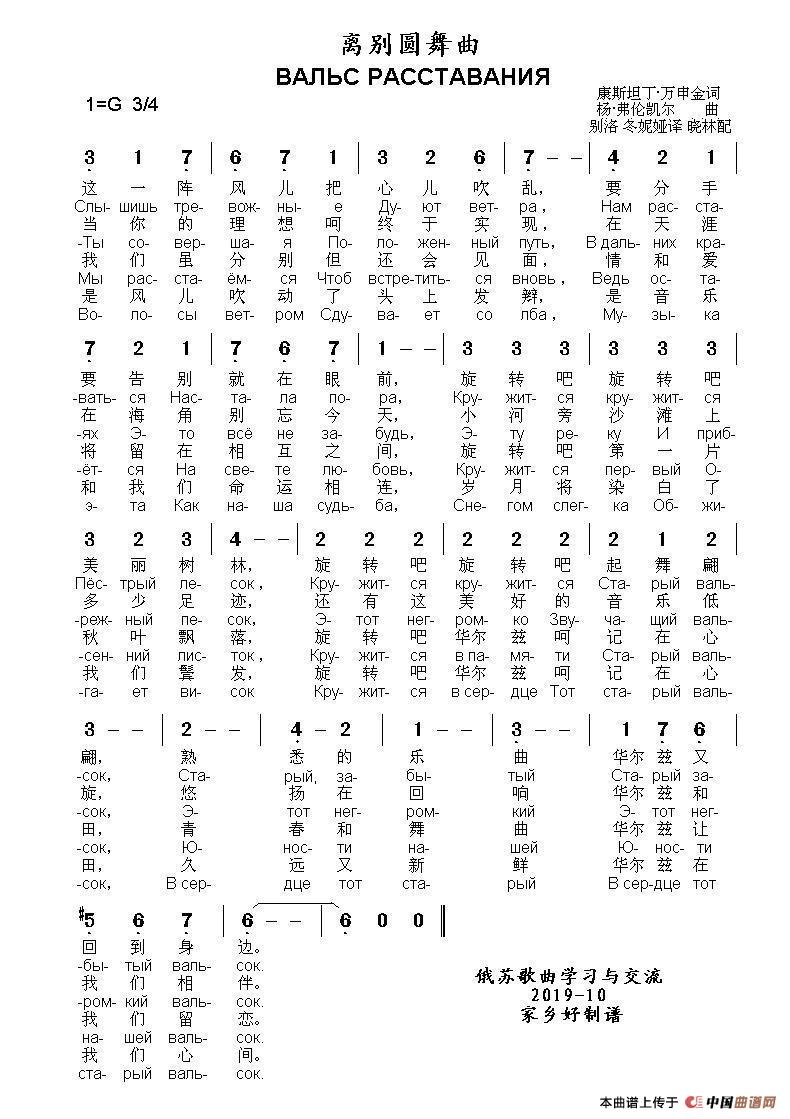 离别圆舞曲
ВАЛЬС РАССТАВАНИЯ
康斯坦丁·万申金词
1=G 3/4
杨·弗伦凯尔 曲
别洛 冬妮娅译 晓林配
3 1 7 | 6 7 1 | 3 2 6 | 7 - - | 4 2 1 |
这 一 阵 风 儿 把 心 儿 吹 乱, 要 分 手
Слы- шишь тре- вож- ны- е Ду- ют вет- ра , Нам рас- ста-
当 你 的 理 想 呵 终 于 实 现, 在 天 涯
-Ты со- вер- ша- я По- ло- жен- ный путь, В даль- них кра-
我 们 虽 分 别 但 还 会 见 面, 情 和 爱
Мы рас- ста- ём- ся Чтоб встре- тить- ся вновь , Ведь ос- та-
是 风 儿 吹 动 了 头 上 发 辫, 是 音 乐
Во- ло- сы вет- ром Сду- ва- ет со лба , Му- зы- ка
7 2 1 | 7 6 7 | 1 - - | 3 3 3 | 3 3 3 |
要 告 别 就 在 眼 前, 旋 转 吧 旋 转 吧
-вать- ся Нас- та- ла по- ра, Кру- жит- ся кру- жит- ся
在 海 角 别 忘 今 天, 小 河 旁 沙 滩 上
-ях Э- то всё не за- будь, Э- ту ре- ку И приб-
将 留 在 相 互 之 间, 旋 转 吧 第 一 片
-ёт- ся На све- те лю- бовь, Кру- жит- ся пер- вый О-
和 我 们 命 运 相 连, 岁 月 将 染 白 了
э- та Как на- ша судь- ба, Сне- гом слег- ка Об- жи-
3 2 3 | 4 - - | 2 2 2 | 2 2 2 | 2 1 2 |
美 丽 树 林, 旋 转 吧 旋 转 吧 起 舞 翩
Пёс- трый ле- сок , Кру- жит- ся кру- жит- ся Ста- рый валь-
多 少 足 迹, 还 有 这 美 好 的 音 乐 低
-реж- ный пе- сок, Э- тот нег- ром- ко Зву- ча- щий валь-
秋 叶 飘 落, 旋 转 吧 华尔 兹 呵 记 在 心
-сен- ний лис- ток , Кру- жит- ся в па- мя- ти Ста- рый валь-
我 们 鬓 发, 旋 转 吧 华尔 兹 呵 记 在 心
-га- ет ви- сок Кру- жит- ся в сер- дце Тот ста- рый валь-
3 - - | 2 - - | 4 - 2 | 1 - - | 3 - - | 1 7 6 |
翩, 熟 悉 的 乐 曲 华尔 兹 又
-сок, Ста- рый, за- бы- тый Ста- рый за-
旋, 悠 扬 在 回 响 华尔 兹 和
-сок, Э- тот нег- ром- кий Э- тот нег-
田, 青 春 和 舞 曲 华尔 兹 让
-сок, Ю- нос- ти на- шей Ю- нос- ти
田, 久 远 又 新 鲜 华尔 兹 在
-сок, В сер- дце тот ста- рый В сер- дце тот
#5 6 7 | 6 - - | 6 0 0 ‖
回 到 身 边。
-бы- тый валь- сок.
我 们 相 伴。
-ром- кий валь- сок.
我 们 留 恋。
на- шей валь- сок.
我 们 心 间。
ста- рый валь- сок.
俄苏歌曲学习与交流
2019-10
家乡好制谱
本曲谱上传于 中国曲谱网